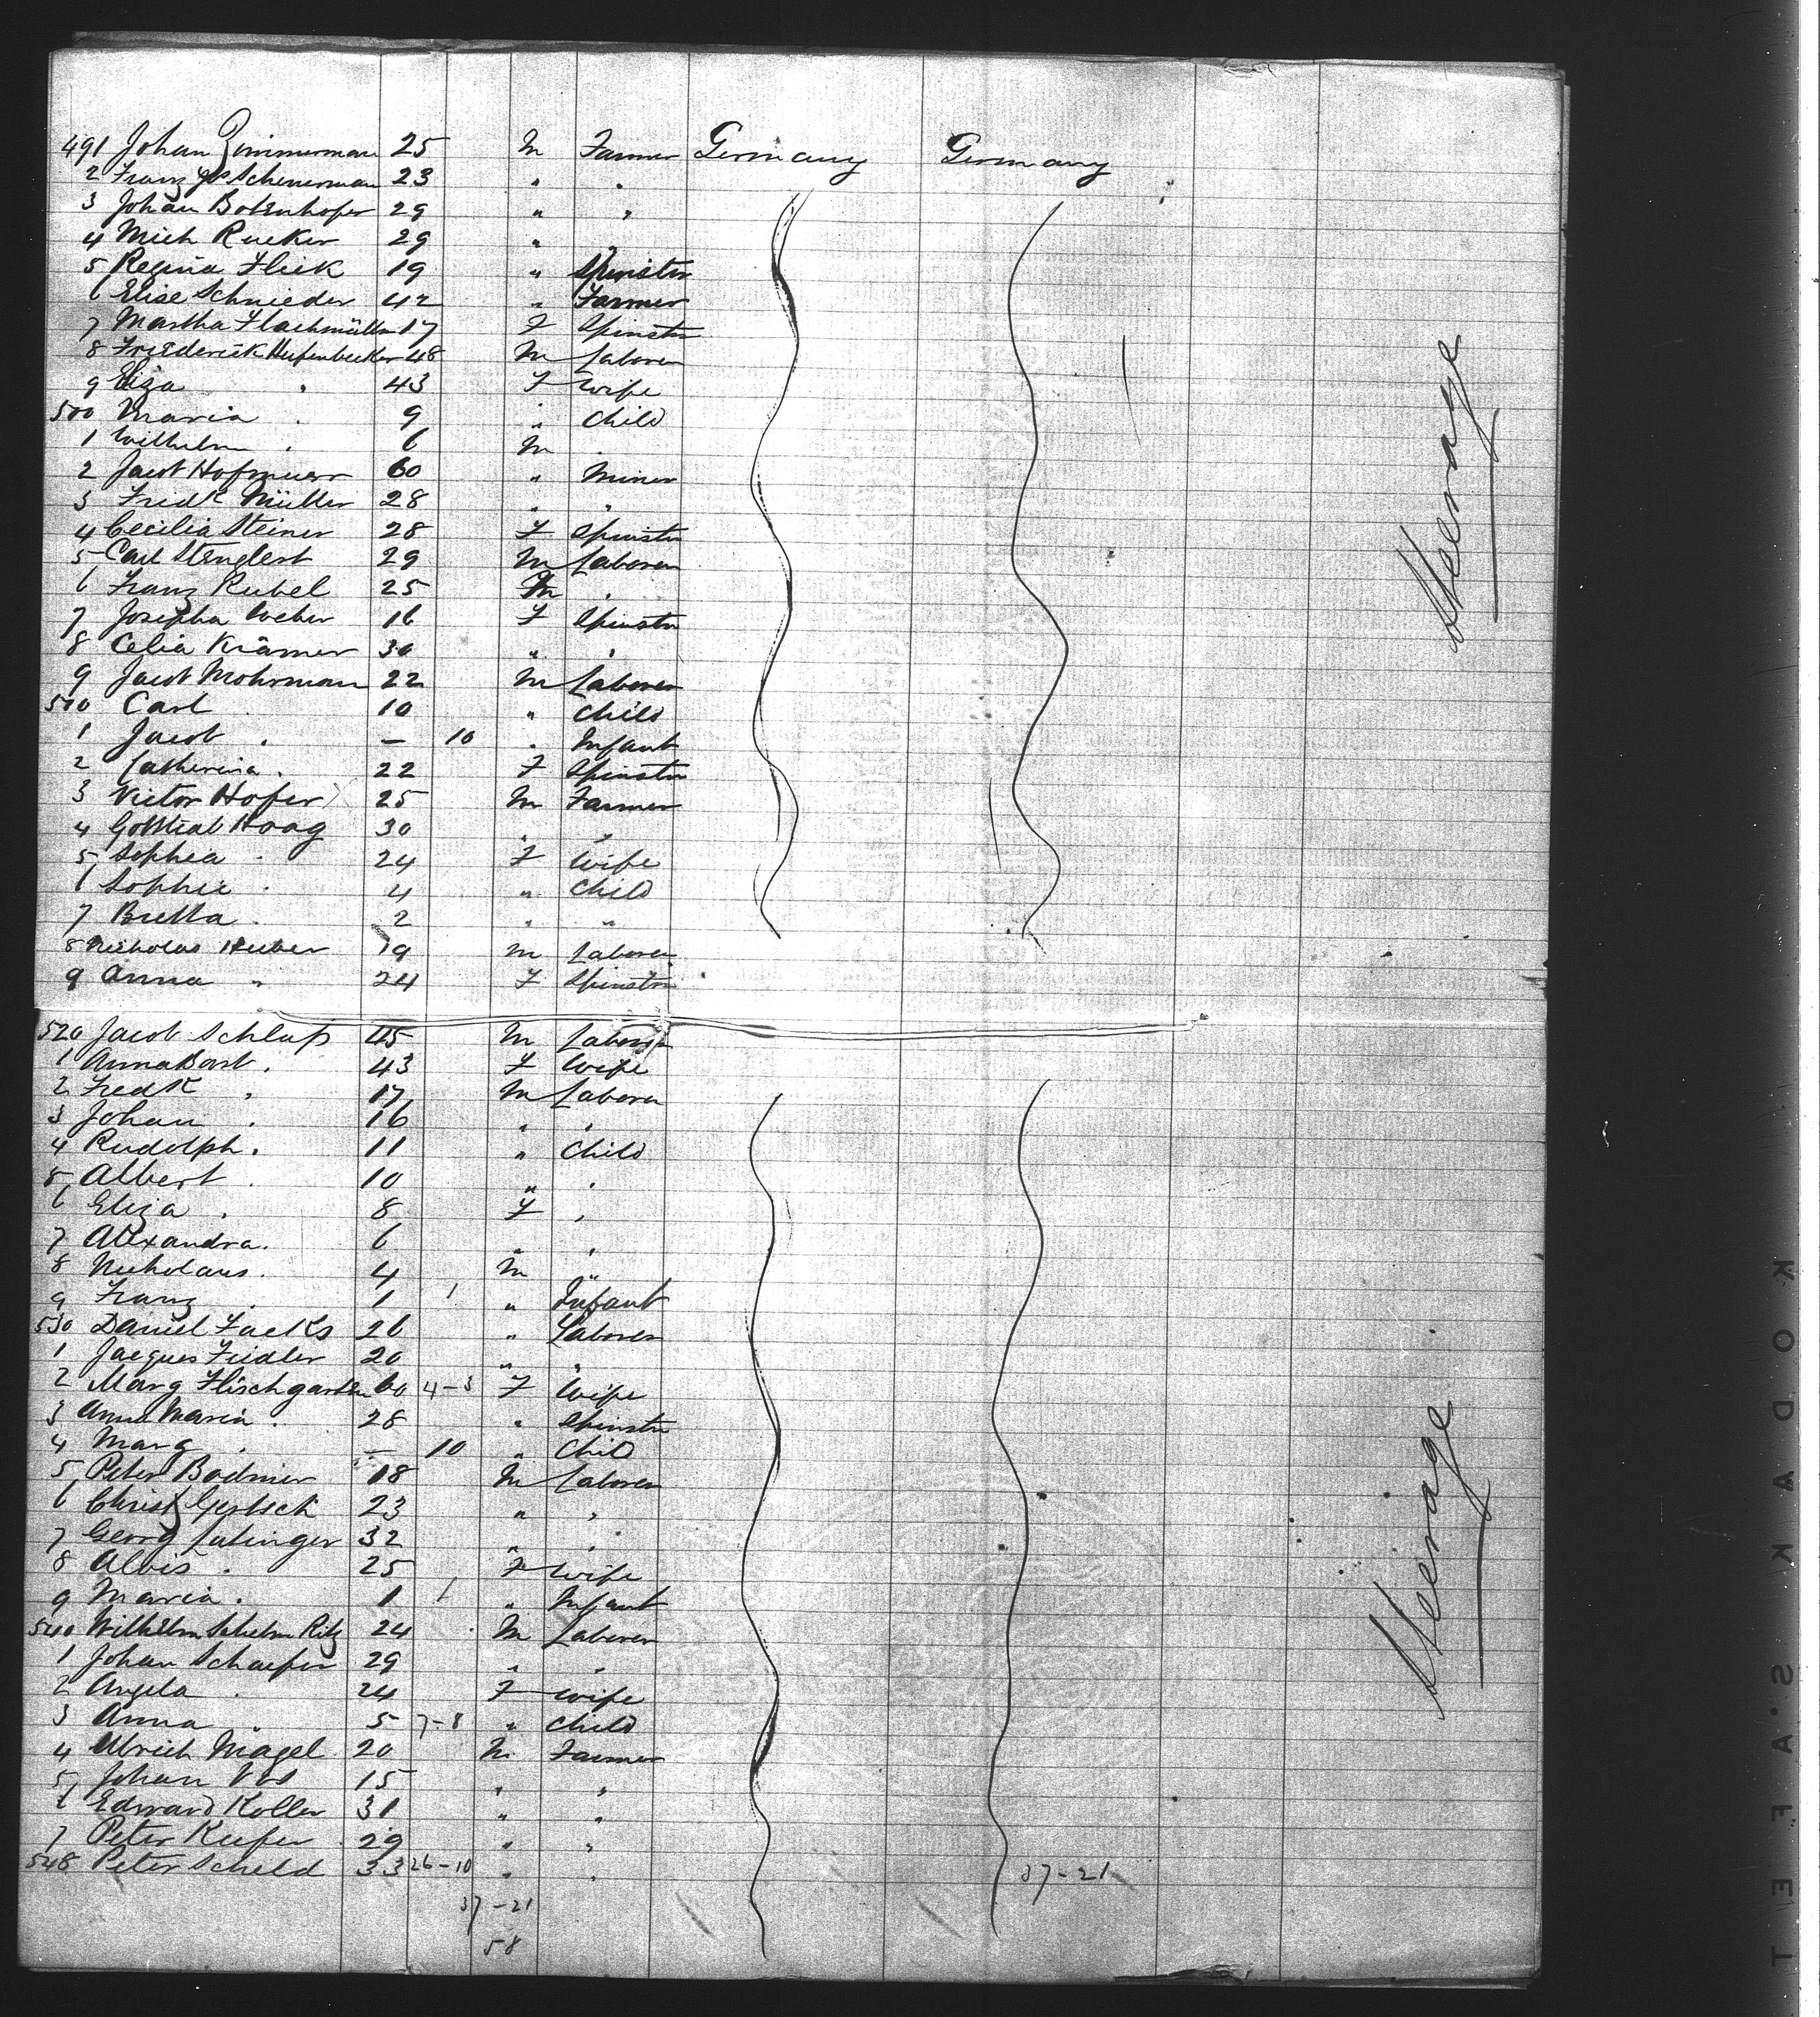 491 Johan Zimmerman 25 M Farmer Germany Germany
2 Franz Scheuerman 23 " "
3 Johan Botenhofer 29 " "
4 Mich Rucker 29 "
5 Regina Flick 19 " Spinster
6 Elise Schnieder 42 " Farmer
7 Martha Flachmüller 17 F Spinster
8 Friederick 48 M Laborer
9 Eliza " 43 F Wife
500 Maria " 9 " Child
1 Wilhelm " 6 M "
2 Jacob 60 " Miner
3 Fredk Müller 28 " "
4 Cecilia Steiner 28 F Spinster
5 Carl Stenglert 29 M Laborer
6 Franz Rubel 25 M "
7 Josepha Weber 16 F Spinster
8 Celia Krämer 30 " "
9 Jacob Mohrman 22 M Laborer
510 Carl " 10 " Child
1 Jacob " — 10 " Infant
2 Catherina " 22 F Spinster
3 Victor Hofer 25 M Farmer
4 Gottlieb Haag 30 " "
5 Sophia " 24 F Wife
6 Sophie " 4 " Child
7 Bretta " 2 " "
8 Nicholas Huber 19 M Laborer
9 Anna " 24 F Spinster
520 Jacob Schlup 45 M Laborer
1 Anna " 43 F Wife
2 Fredk " 17 M Laborer
3 Johan " 16 " "
4 Rudolph " 11 " Child
5 Albert " 10 " "
6 Eliza " 8 F "
7 Alexandra " 6 " "
8 Nicholaus " 4 M "
9 Franz " 1 1 " Infant
530 Daniel Facks 26 " Laborer
1 Jacques Fiedler 20 " "
2 Marg Flischgarten 60 4-3 F Wife
3 Anna Maria " 28 " Spinster
4 Marg " — 10 " Child
5 Peter Bodmer 18 M Laborer
6 Christ Gertsch 23 " "
7 Georg Latinger 32 " "
8 Alois " 25 F Wife
9 Maria " 1 1 " Infant
540 Wilhelm Ritz 24 M Laborer
1 Johan Schaefer 29 " "
2 Angela " 24 F Wife
3 Anna " 5 7-8 " Child
4 Ulrich Nagel 20 M Farmer
5 Johan Vos 15 " "
6 Edward Koller 31 " "
7 Peter Kiefer 29 " "
548 Peter Scheld 33 26-10 " " 37-21
37-21
58
Steerage
Steerage
KODAK S.A.F.E.T